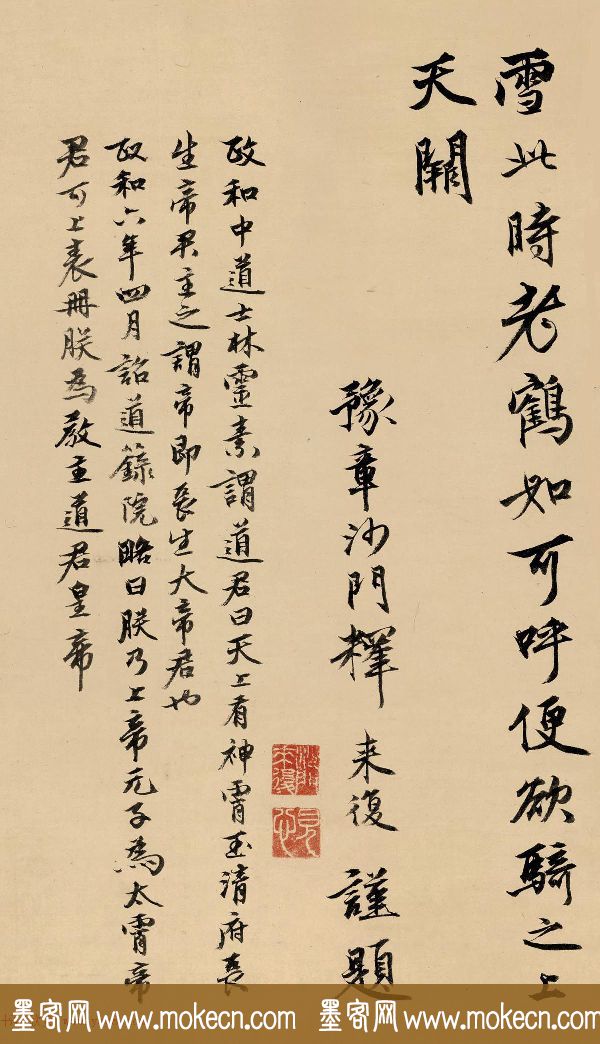 雪此時老鶴如可呼便欲騎之上
天關
豫章沙門釋来復謹題
政和中道士林靈素謂道君曰天上有神霄玉清府長
生帝君主之謂帝即長生大帝君也
政和六年四月詔道籙院略曰朕乃上帝元子為太霄帝
君可上表冊朕為教主道君皇帝
墨客网 www.mokecn.com 墨客网 www.mokecn.com